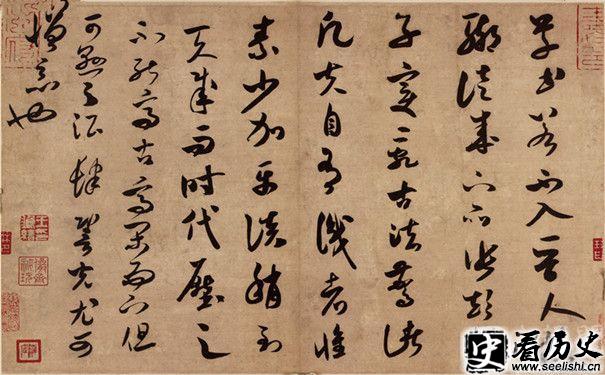 草書若不入晉人
格輒徒成下品張顛俗
子變亂古法驚諸
凡夫自有識者懷
素少加平淡稍到
天成而時代壓之
不能高古高閑而下但
可懸之酒肆䛒光尤可
憎惡也
史 看历史
www.seelishi.cn